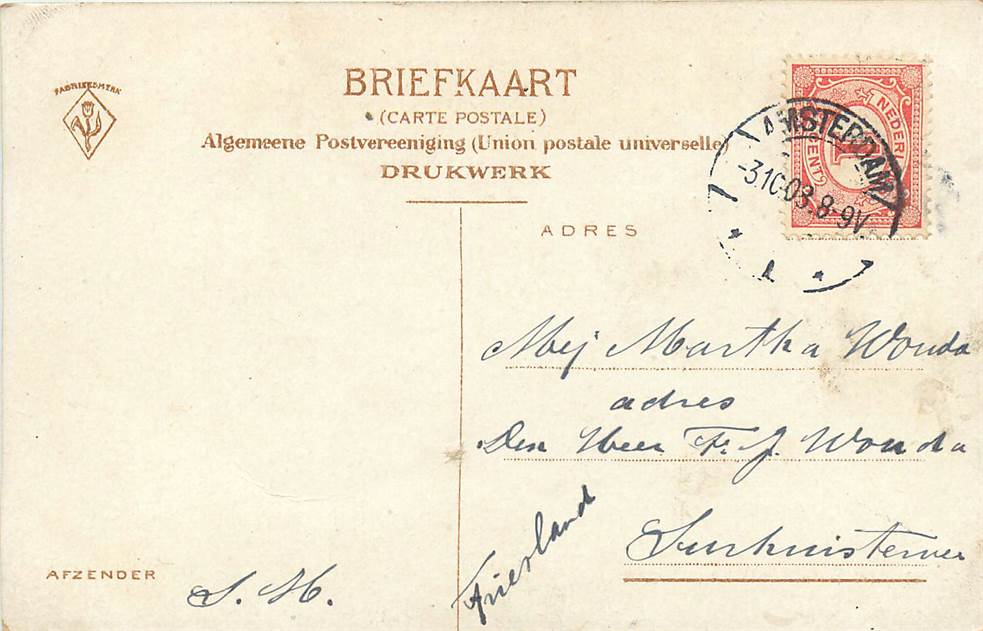 FABRIEKSMERK
BRIEFKAART
(CARTE POSTALE)
Algemeene Postvereeniging (Union postale universelle)
DRUKWERK
NEDERL
1
CENT
AMSTERDAM
-3.10-08.8-9V.
1
ADRES
Mej Martha Wouda
adres
Den Heer F. J. Wouda
Surhuistervee
Friesland
AFZENDER
S. M.